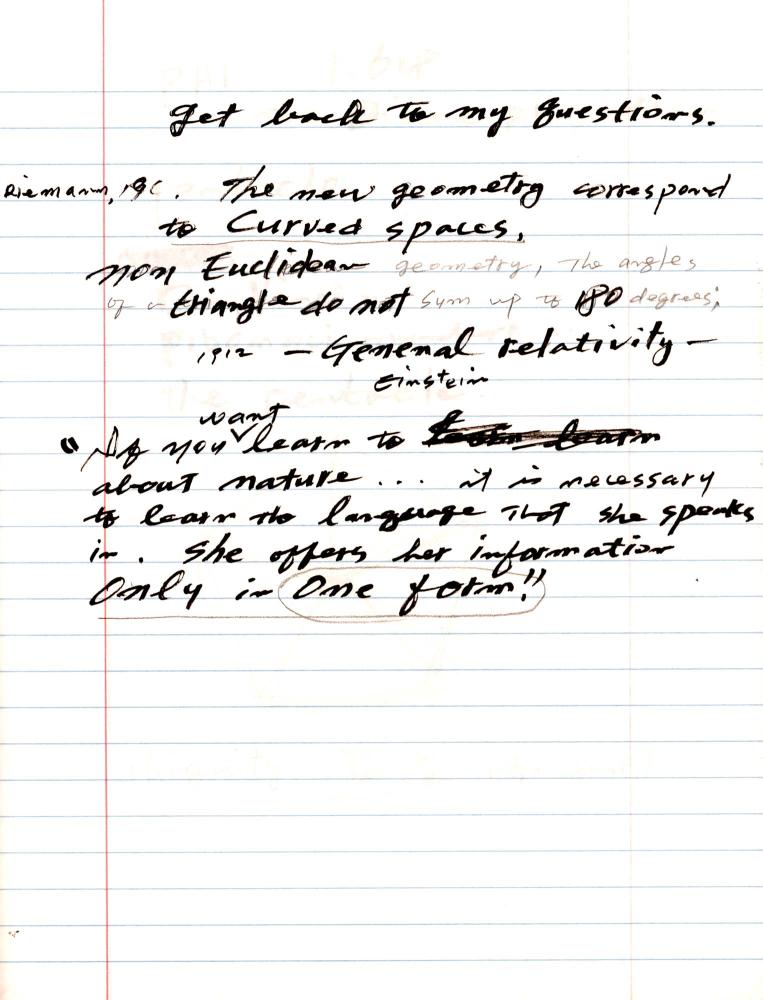 get back to my questions.
Riemann, 19C. The new geometry correspond
to Curved spaces,
non Euclidean geometry, The angles
of a triangle do not sum up to 180 degrees;
1912 — General relativity —
Einstein
want
"If you learn to
about nature ... it is necessary
to learn the language that she speaks
in. She offers her information
Only in One form!!